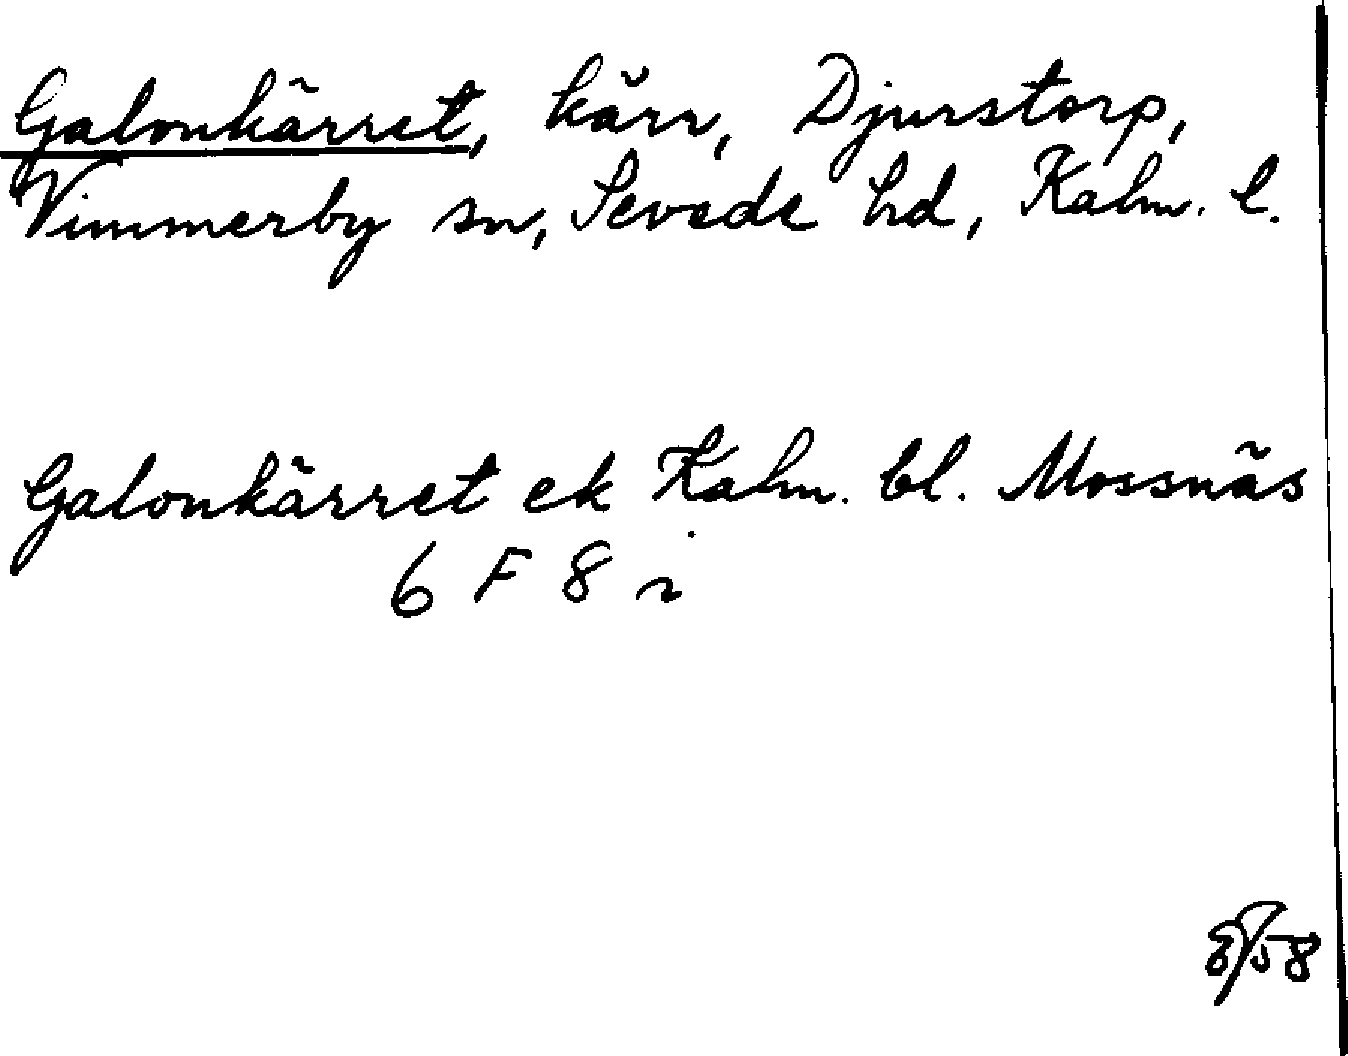 Galonkärret, kärr, Djurstorp,
Vimmerby sn, Sevede hd, Kalm. l.
Galonkärret ek Kalm. bl. Mossnäs
6 F 8 i